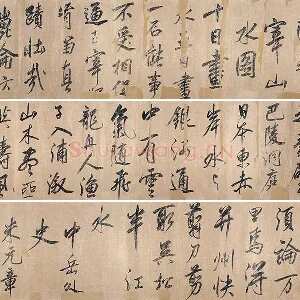 宰山
水圖
十日畫
水五日畫
一石能事
不受相促
逼王宰
肯留真
蹟壯哉
崑崙方
巴陵洞庭
日本東赤
岸水與
銀河通
中有雲
氣隨飛
龍舟人漁
子入浦漵
山木盡亞
濤風
須論万
里焉得
并州快
剪刀剪
取吳松
半江
水
中岳外
史
米元章